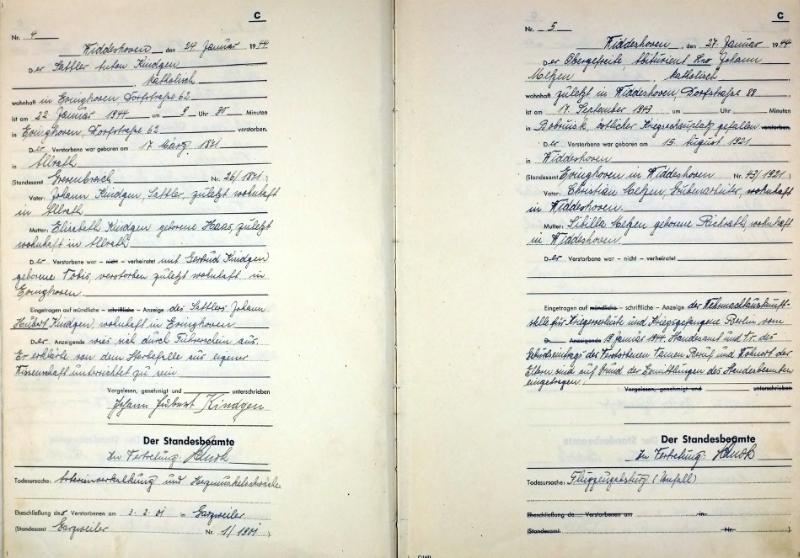 C
Nr. 4
Widdeshoven, den 24. Januar 1944
Der Sattler Anton Kindgen
katholisch
wohnhaft in Evinghoven, Dorfstraße 62
ist am 22. Januar 1944 um 9 Uhr 30 Minuten
in Evinghoven, Dorfstraße 62 verstorben.
Der Verstorbene war geboren am 17. März 1871
in Allrath
(Standesamt Grevenbroich Nr. 26/1871)
Vater: Johann Kindgen, Sattler, zuletzt wohnhaft
in Allrath
Mutter: Elisabeth Kindgen geborene Haas, zuletzt
wohnhaft in Allrath
Der Verstorbene war – nicht – verheiratet mit Gertrud Kindgen
geborene Tobis, verstorben zuletzt wohnhaft in
Evinghoven
Eingetragen auf mündliche – schriftliche – Anzeige des Sattlers Johann
Hubert Kindgen, wohnhaft in Evinghoven
Der Anzeigende wies sich durch Führerschein aus.
Er erklärte von dem Sterbefalle aus eigener
Wissenschaft unterrichtet zu sein
Vorgelesen, genehmigt und unterschrieben
Johann Hubert Kindgen
Der Standesbeamte
In Vertretung:
Todesursache: Arterienverkalkung und Herzmuskelschwäche
Eheschließung des Verstorbenen am 2.2.01 in Garzweiler
(Standesamt Garzweiler Nr. 1/1901)
C
Nr. 5
Widdeshoven, den 27. Januar 1944
Der Obergefreite Abiturient Johann
katholisch
wohnhaft zuletzt in Widdeshoven, Dorfstraße 88
ist am 17. September 1943 um Uhr Minuten
in östlicher Kriegsschauplatz gefallen verstorben.
Der Verstorbene war geboren am 15. August 1921
in Widdeshoven
(Standesamt Evinghoven in Widdeshoven Nr. 43/1921)
Vater: Christian wohnhaft
in Widdeshoven
Mutter: Sibilla geborene wohnhaft
in Widdeshoven
Der Verstorbene war – nicht – verheiratet
Eingetragen auf mündliche – schriftliche – Anzeige der Wehrmachtauskunft-
stelle für Kriegsverluste und Kriegsgefangene Berlin vom
D Anzeigende 19. Januar 1944. Standesamt und Nr. des
Geburtseintrags des Verstorbenen Namen Beruf und Wohnort der
Eltern sind auf Grund der Ermittlungen des Standesbeamten
eingetragen.
Vorgelesen, genehmigt und unterschrieben
Der Standesbeamte
In Vertretung:
Todesursache: Flugzeugabsturz (Unfall)
Eheschließung de Verstorbenen am in
(Standesamt Nr. )